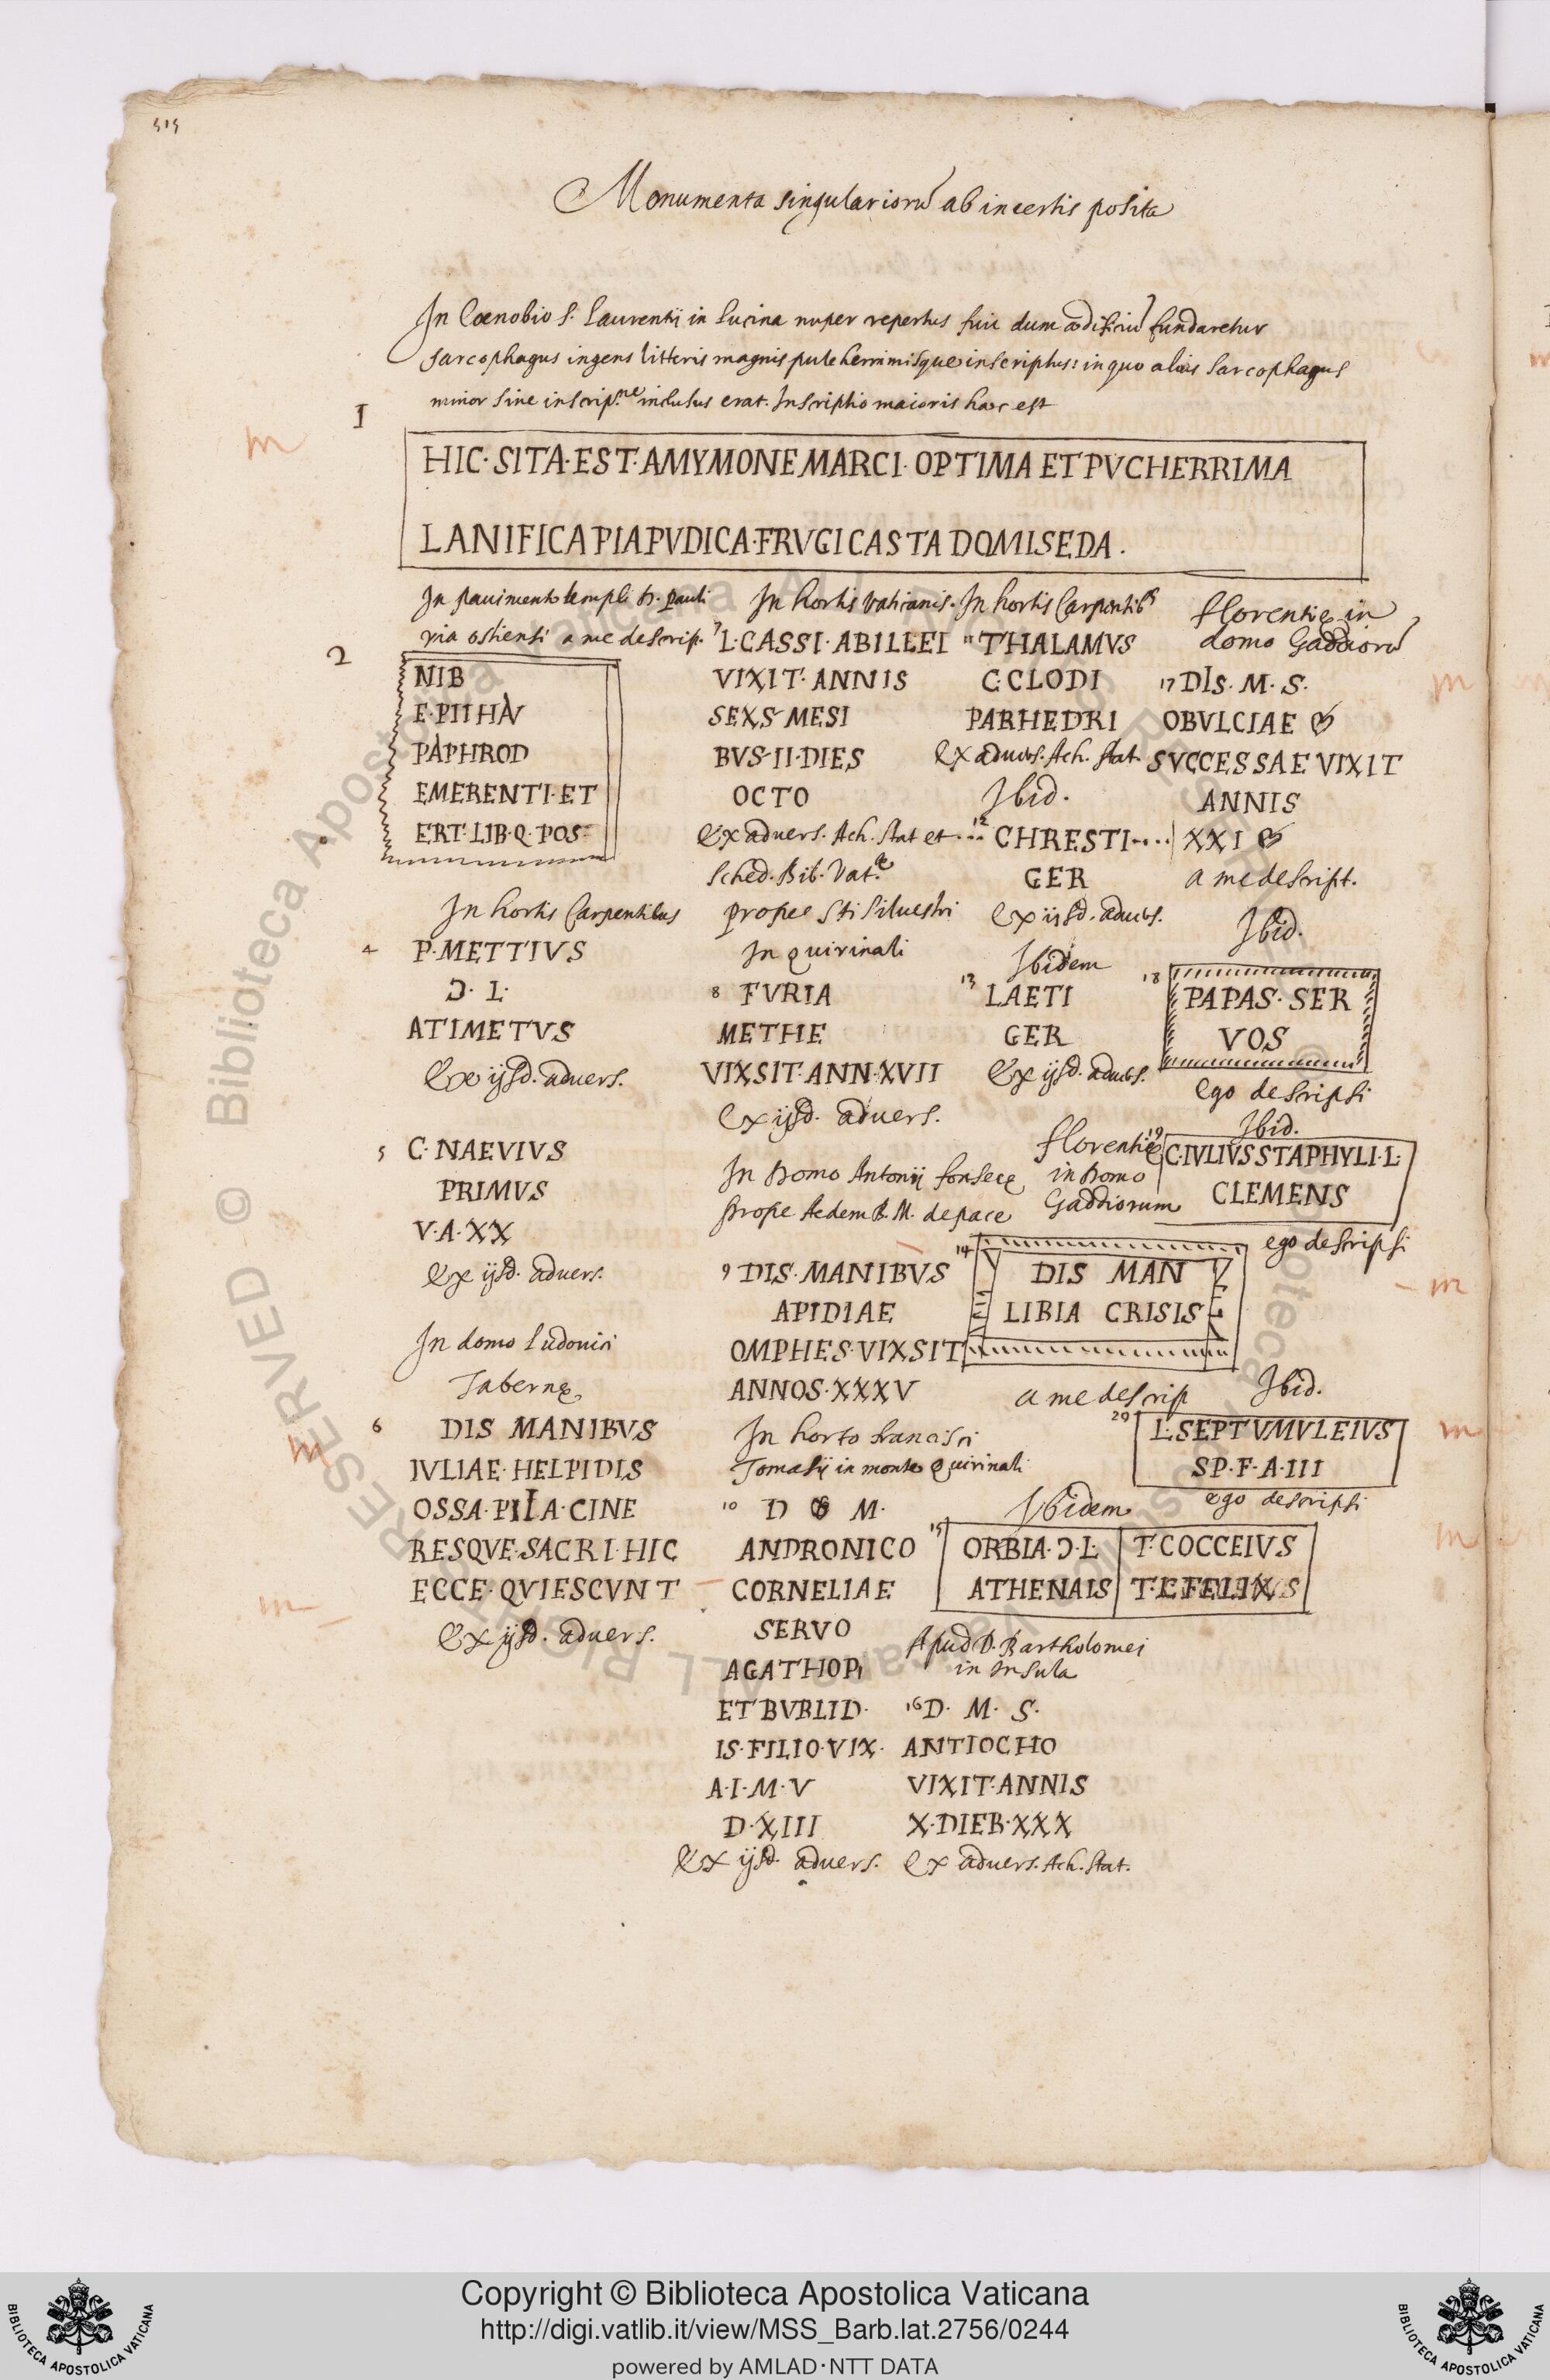 515
Monumenta singulariorũ ab incertis posita
In Cœnobio S. Laurentij in Lucina nuper repertus fuit dum ædificiũ fundaretur
sarcophagus ingens litteris magnis pulcherrimisque inscriptus: in quo alius sarcophagus
minor sine inscrip.ne inclusus erat. Inscriptio maioris hæc est
1
HIC· SITA·EST·AMYMONE MARCI· OPTIMA ET PVCHERRIMA
LANIFICA PIA PVDICA·FRVGI CASTA DOMISEDA.
In pavimento templi D. Pauli
via ostiensi a me descrip.
2
NIB
E·PIIHAV
PAPHROD
EMERENTI·ET
ERT·LIB·Q·POS
In hortis Carpentibus
4 P·METTIVS
Ɔ· L·
ATIMETVS
Ex ijsd. advers.
5 C·NAEVIVS
PRIMVS
V·A·XX
Ex ijsd. advers.
In domo Ludovici
Tabernę
6 DIS MANIBVS
IVLIAE·HELPIDIS
OSSA·PIIA·CINE
RESQVE·SACRI·HIC
ECCE·QVIESCVNT
Ex ijsd. advers.
In hortis Vaticanis.
7 L·CASSI·ABILLEI
VIXIT·ANNIS
SEXS·MESI
BVS·II·DIES
OCTO
Ex advers. Ach. Stat et
Sched. Bib. Vat.
prope Sti Silvestri
In quirinali
8 FVRIA
METHE
VIXSIT·ANN·XVII
Ex ijsd. advers.
In Domo Antonij fonsecę
prope Aedem B. M. de pace
9 DIS·MANIBVS
APIDIAE
OMPHES·VIXSIT
ANNOS·XXXV
In horto francisci
Tomasij in monte Quirinali
10 D M·
ANDRONICO
CORNELIAE
SERVO
AGATHOPI
ET BVBLID·
IS·FILIO·VIX·
A·I·M·V
D·XIII
Ex ijsd. advers.
In hortis Carpentibꝰ
11 THALAMVS
C·CLODI
PARHEDRI
Ex advers. Ach. Stat.
Ibid.
12 ... CHRESTI....
GER
Ex ijsd. advers.
Ibidem
13 LAETI
GER
Ex ijsd. advers.
florentię
in Domo
Gaddiorum
14 DIS MAN
LIBIA CRISIS
a me descrip
Ibidem
15 ORBIA·Ɔ·L· T·COCCEIVS
ATHENAIS T·L·FELIX
Apud D. Bartholomei
in Insula
16 D· M· S·
ANTIOCHO
VIXIT·ANNIS
X·DIEB·XXX
Ex advers. Ach. Stat.
florentię in
domo Gaddiorũ
17 DIS· M· S·
OBVLCIAE
SVCCESSAE VIXIT
ANNIS
XXI
a me descript.
Ibid.
18 PAPAS·SER
VOS
ego descripsi
Ibid.
19 C·IVLIVS STAPHYLI·L·
CLEMENS
ego descripsi
Ibid.
20 L·SEPTVMVLEIVS
SP·F·A·III
ego descripsi
m
m
m
m
m
m
m
© Biblioteca Apostolica Vaticana ALL RIGHTS RESERVED
BIBLIOTECA APOSTOLICA VATICANA
Copyright © Biblioteca Apostolica Vaticana
http://digi.vatlib.it/view/MSS_Barb.lat.2756/0244
powered by AMLAD·NTT DATA
BIBLIOTECA APOSTOLICA VATICANA